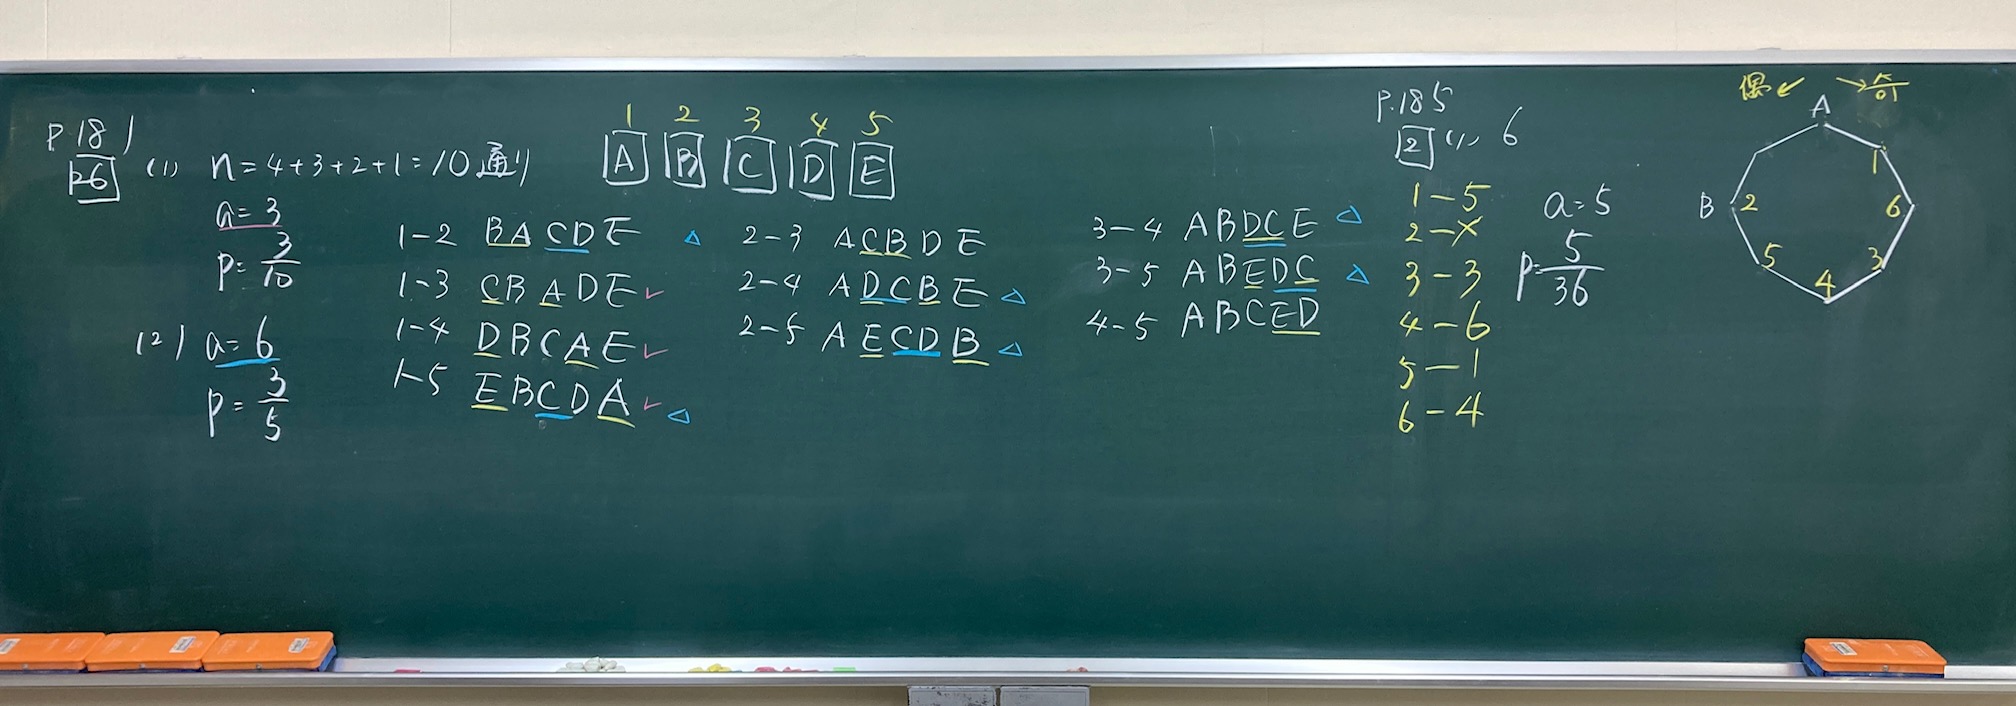 P.181
P6 (1) n=4+3+2+1=10通り
a=3
P=3/10
(2) a=6
P=3/5
1 2 3 4 5
A B C D E
1-2 BACDE △
1-3 CBADE ✓
1-4 DBCAE ✓
1-5 EBCDA ✓ △
2-3 ACBDE
2-4 ADCBE △
2-5 AECDB △
3-4 ABDCE △
3-5 ABEDC △
4-5 ABCED
P.185
2 (1) 6
1-5
2-×
3-3
4-6
5-1
6-4
a=5
P=5/36
偶↙ →
A
1
B 2 6
5 3
4